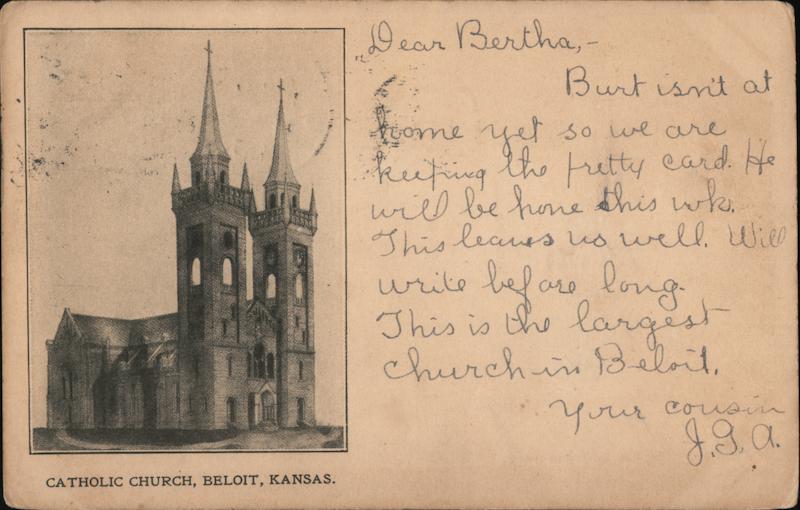 Dear Bertha,-
Burt isn't at
home yet so we are
keeping the pretty card. He
will be home this wk.
This leaves us well. Will
write before long.
This is the largest
church in Beloit.
Your cousin
J.G.A.
CATHOLIC CHURCH, BELOIT, KANSAS.